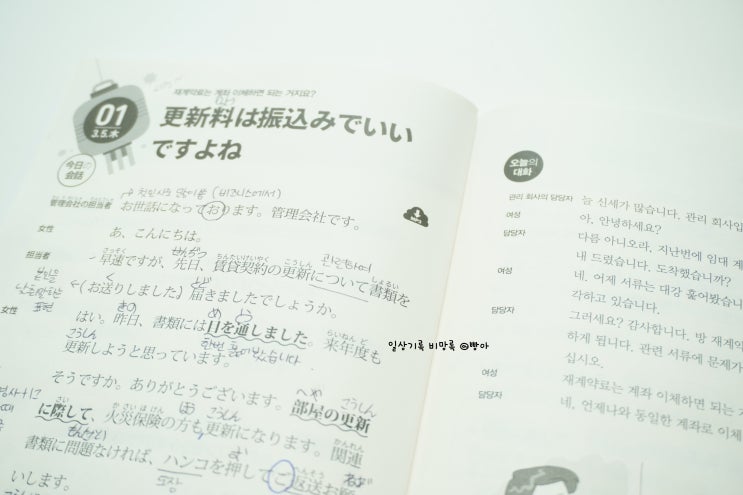 재계약료는 계좌 이체하면 되는 거지요?
01
3.5.木
更新料は振込みでいい
ですよね
今日の
会話
(비즈니스에서)
管理会社の担当者 お世話になっております。管理会社です。
MP3
女性 あ、こんにちは。
担当者 早速ですが、先日、賃貸契約の更新について書類を
(お送りしました) 届きましたでしょうか。
女性 はい。昨日、書類には目を通しました。来年度も
更新しようと思っています。
そうですか。ありがとうございます。部屋の更新
に際して、火災保険の方も更新になります。関連
書類に問題なければ、ハンコを押してご返送お願
도장
いします。
오늘의
대화
관리 회사의 담당자 늘 신세가 많습니다. 관리 회사입
여성 아, 안녕하세요?
담당자 다름 아니오라, 지난번에 임대 계
내 드렸습니다. 도착했습니까?
여성 네. 어제 서류는 대강 훑어봤습니
각하고 있습니다.
담당자 그러세요? 감사합니다. 방 재계약
하게 됩니다. 관련 서류에 문제가
십시오.
여성 재계약료는 계좌 이체하면 되는 거
담당자 네, 언제나와 동일한 계좌로 이체
일상기록 비망록 @빵아